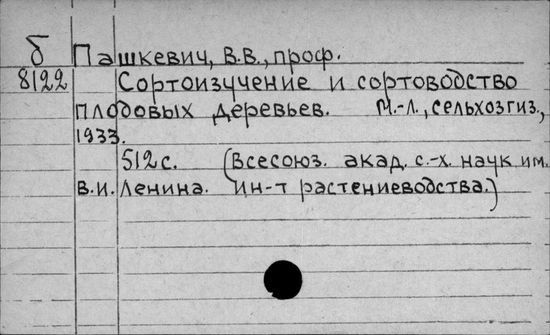 б Пашкевич, В.В., проф.
8122 Сортоизучение и сортоводство
плодовых деревьев. М.-Л., сельхозгиз.,
1933.
512 с. (Всесоюз. акад. с.-х. наук им.
В.И. Ленина. Ин-т растениеводства.)